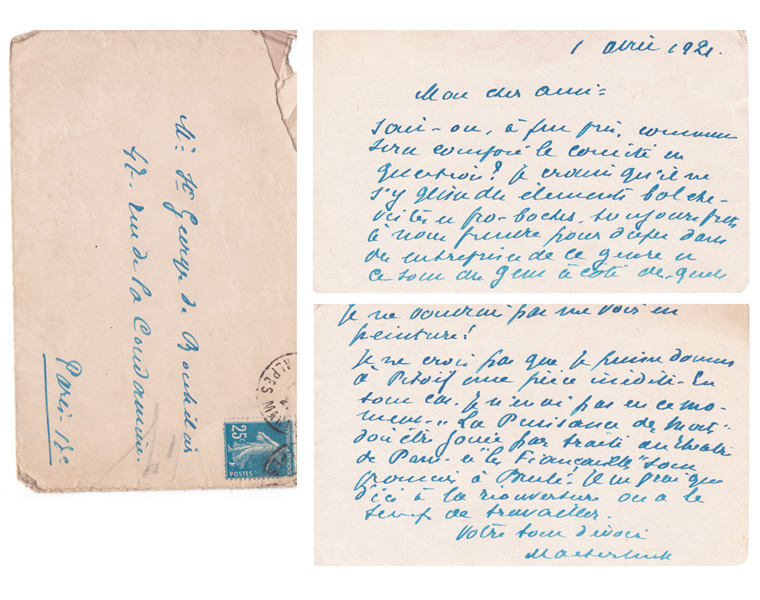 Mr. St George de Bouhélier
47. rue de la Condamine.
Paris. 17e
ALPES MAR
25c
POSTES
1 avril 1921.
Mon cher ami =
Sait-on, à peu près, comment
sera composé le comité en
question? Je crains qu'il ne
s'y glisse des éléments bolche-
vistes et pro-boches, toujours prêts
à nous prendre pour dupes dans
des entreprises de ce genre et
ce sont des gens à côté desquels
je ne voudrais pas me voir en
peinture!
Je ne crois pas que je puisse donner
à Pitoëff une pièce inédite. En
tout cas, je n'en ai pas en ce mo-
ment. "La Puissance des Morts"
doit être jouée par traité au théâtre
de Paris et "les Fiançailles" sont
promises à Brulé. Je ne
d'ici à la réouverture on a le
temps de travailler.
Votre tout dévoué
Maeterlinck